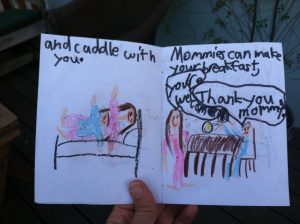 and caddle with
you.
Mommies can make
your breakfast,
Thank you
mommy.